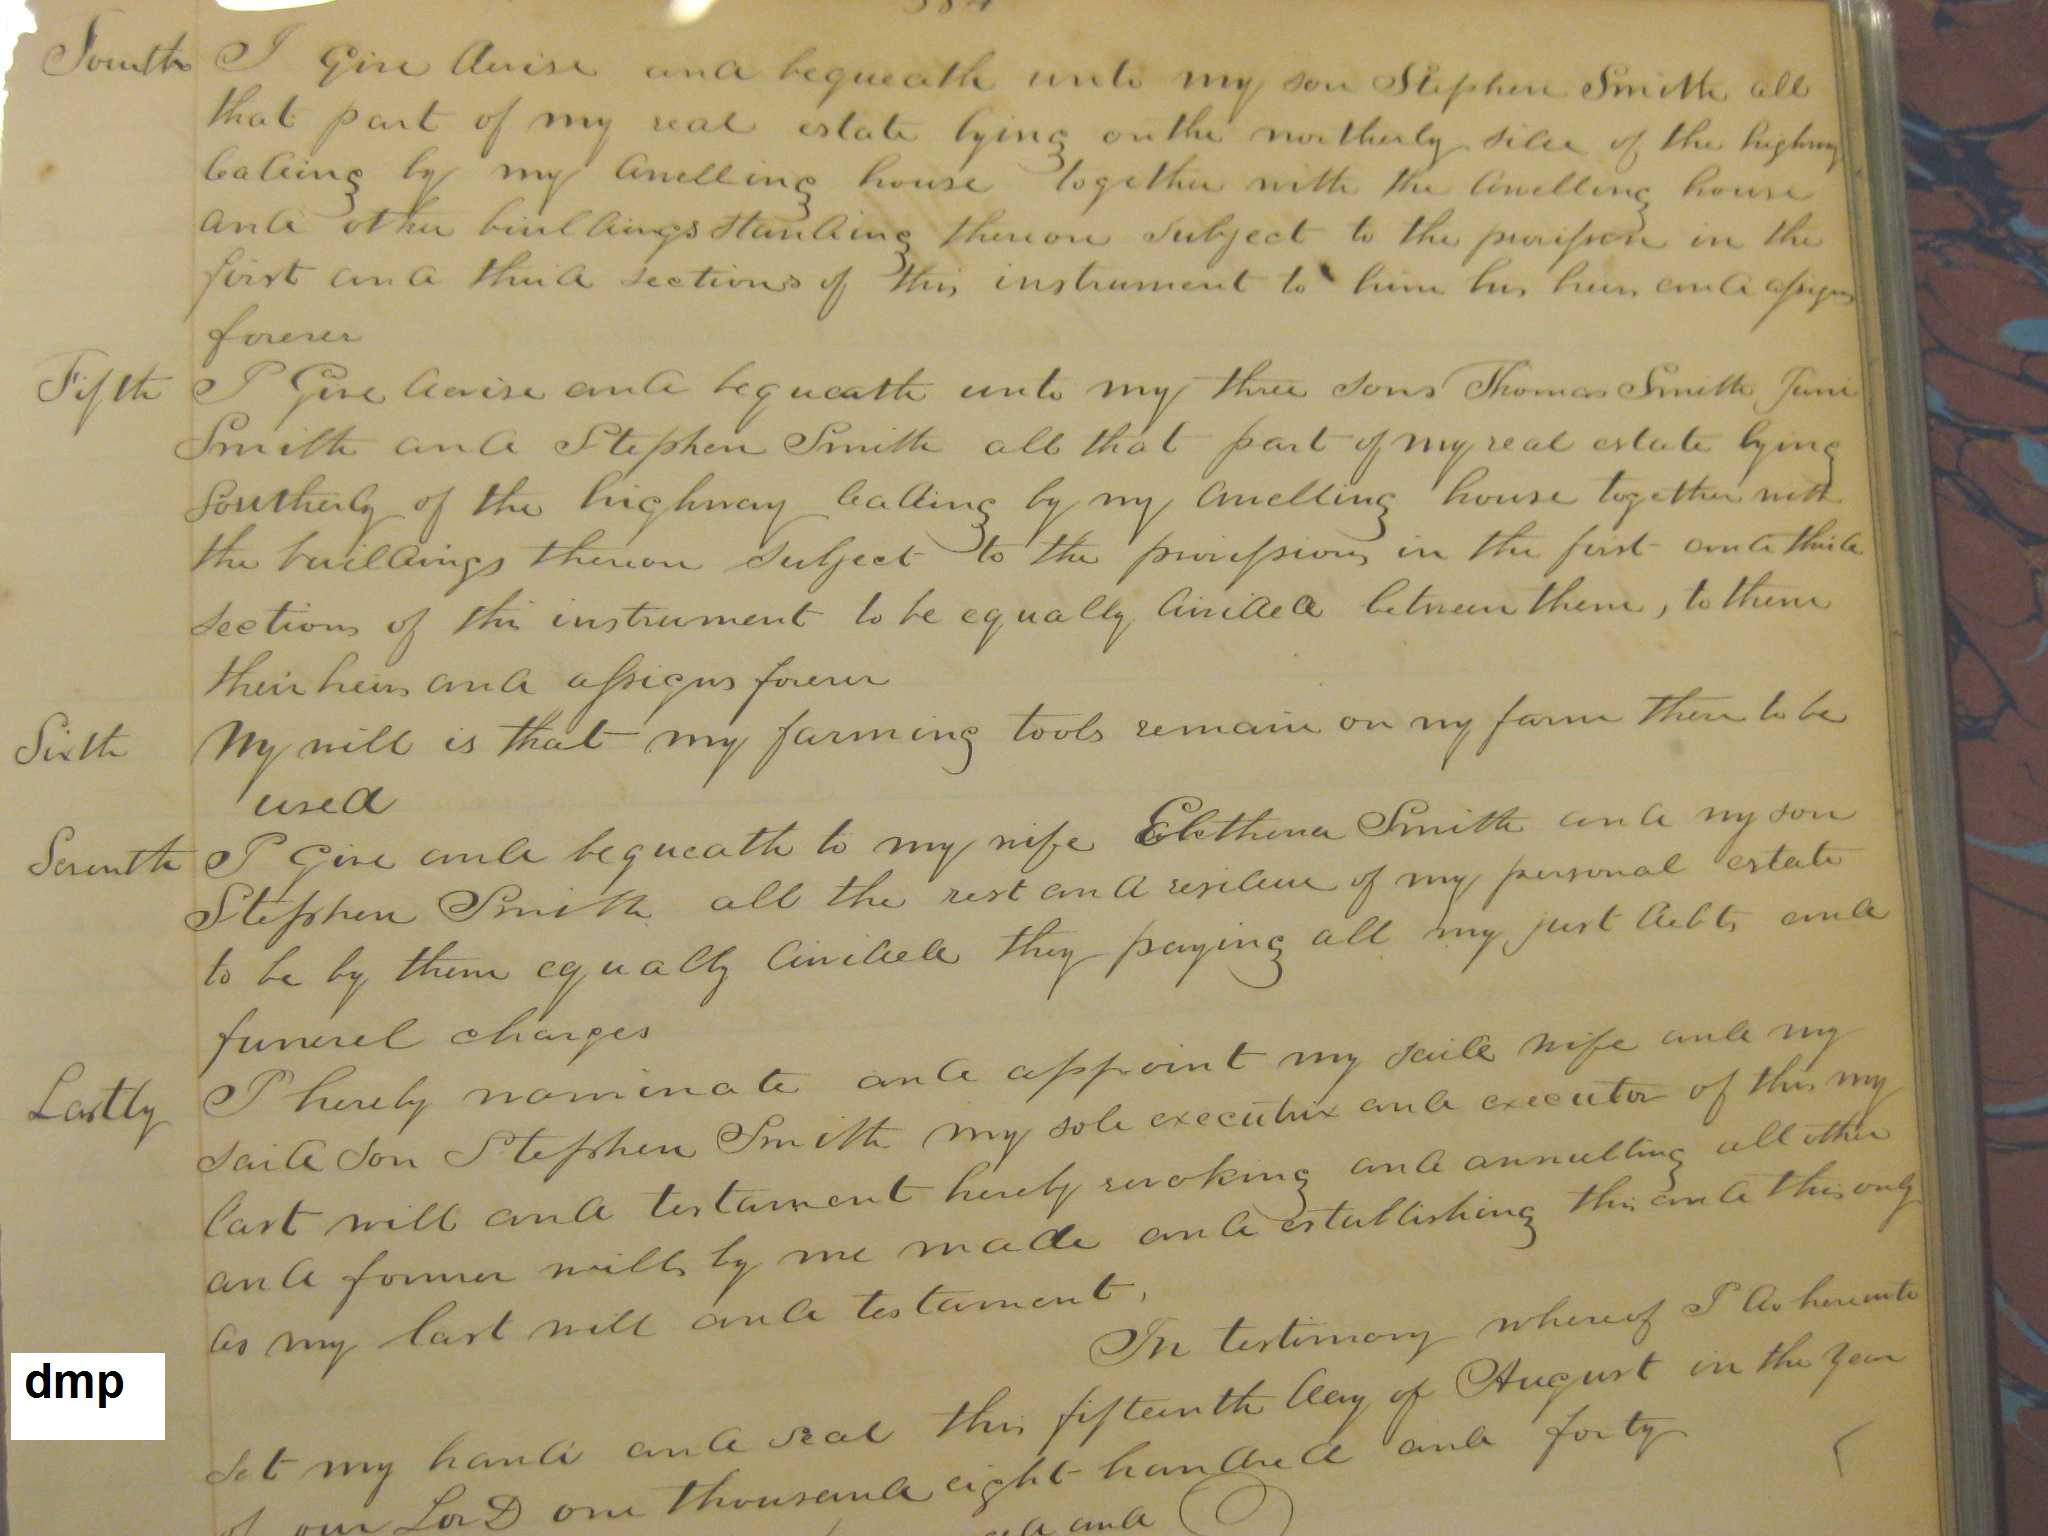 384
Fourth I Give devise and bequeath unto my son Stephen Smith all
that part of my real estate lying on the northerly side of the highway
leading by my dwelling house together with the dwelling house
and other buildings standing thereon subject to the provision in the
first and third sections of this instrument to him his heirs and assigns
forever
Fifth I Give devise and bequeath unto my three sons Thomas Smith
Smith and Stephen Smith all that part of my real estate lying
Southerly of the highway leading by my dwelling house together with
the buildings thereon subject to the provissions in the first and third
sections of this instrument to be equally divided between them, to them
their heirs and assigns forever
Sixth My will is that my farming tools remain on my farm there to be
used
Seventh I Give and bequeath to my wife Smith and my son
Stephen Smith all the rest and residue of my personal estate
to be by them equally divided they paying all my just debts and
funerel charges
Lastly I hereby nominate and appoint my said wife and my
said son Stephen Smith my sole executrix and executor of this my
last will and testament hereby revoking and annulling all other
and former wills by me made and establishing this and this only
as my last will and testament.
In testimony whereof I do hereunto
set my hand and seal this fifteenth day of August in the year
of our LorD one thousand eight hundred and forty
and
dmp